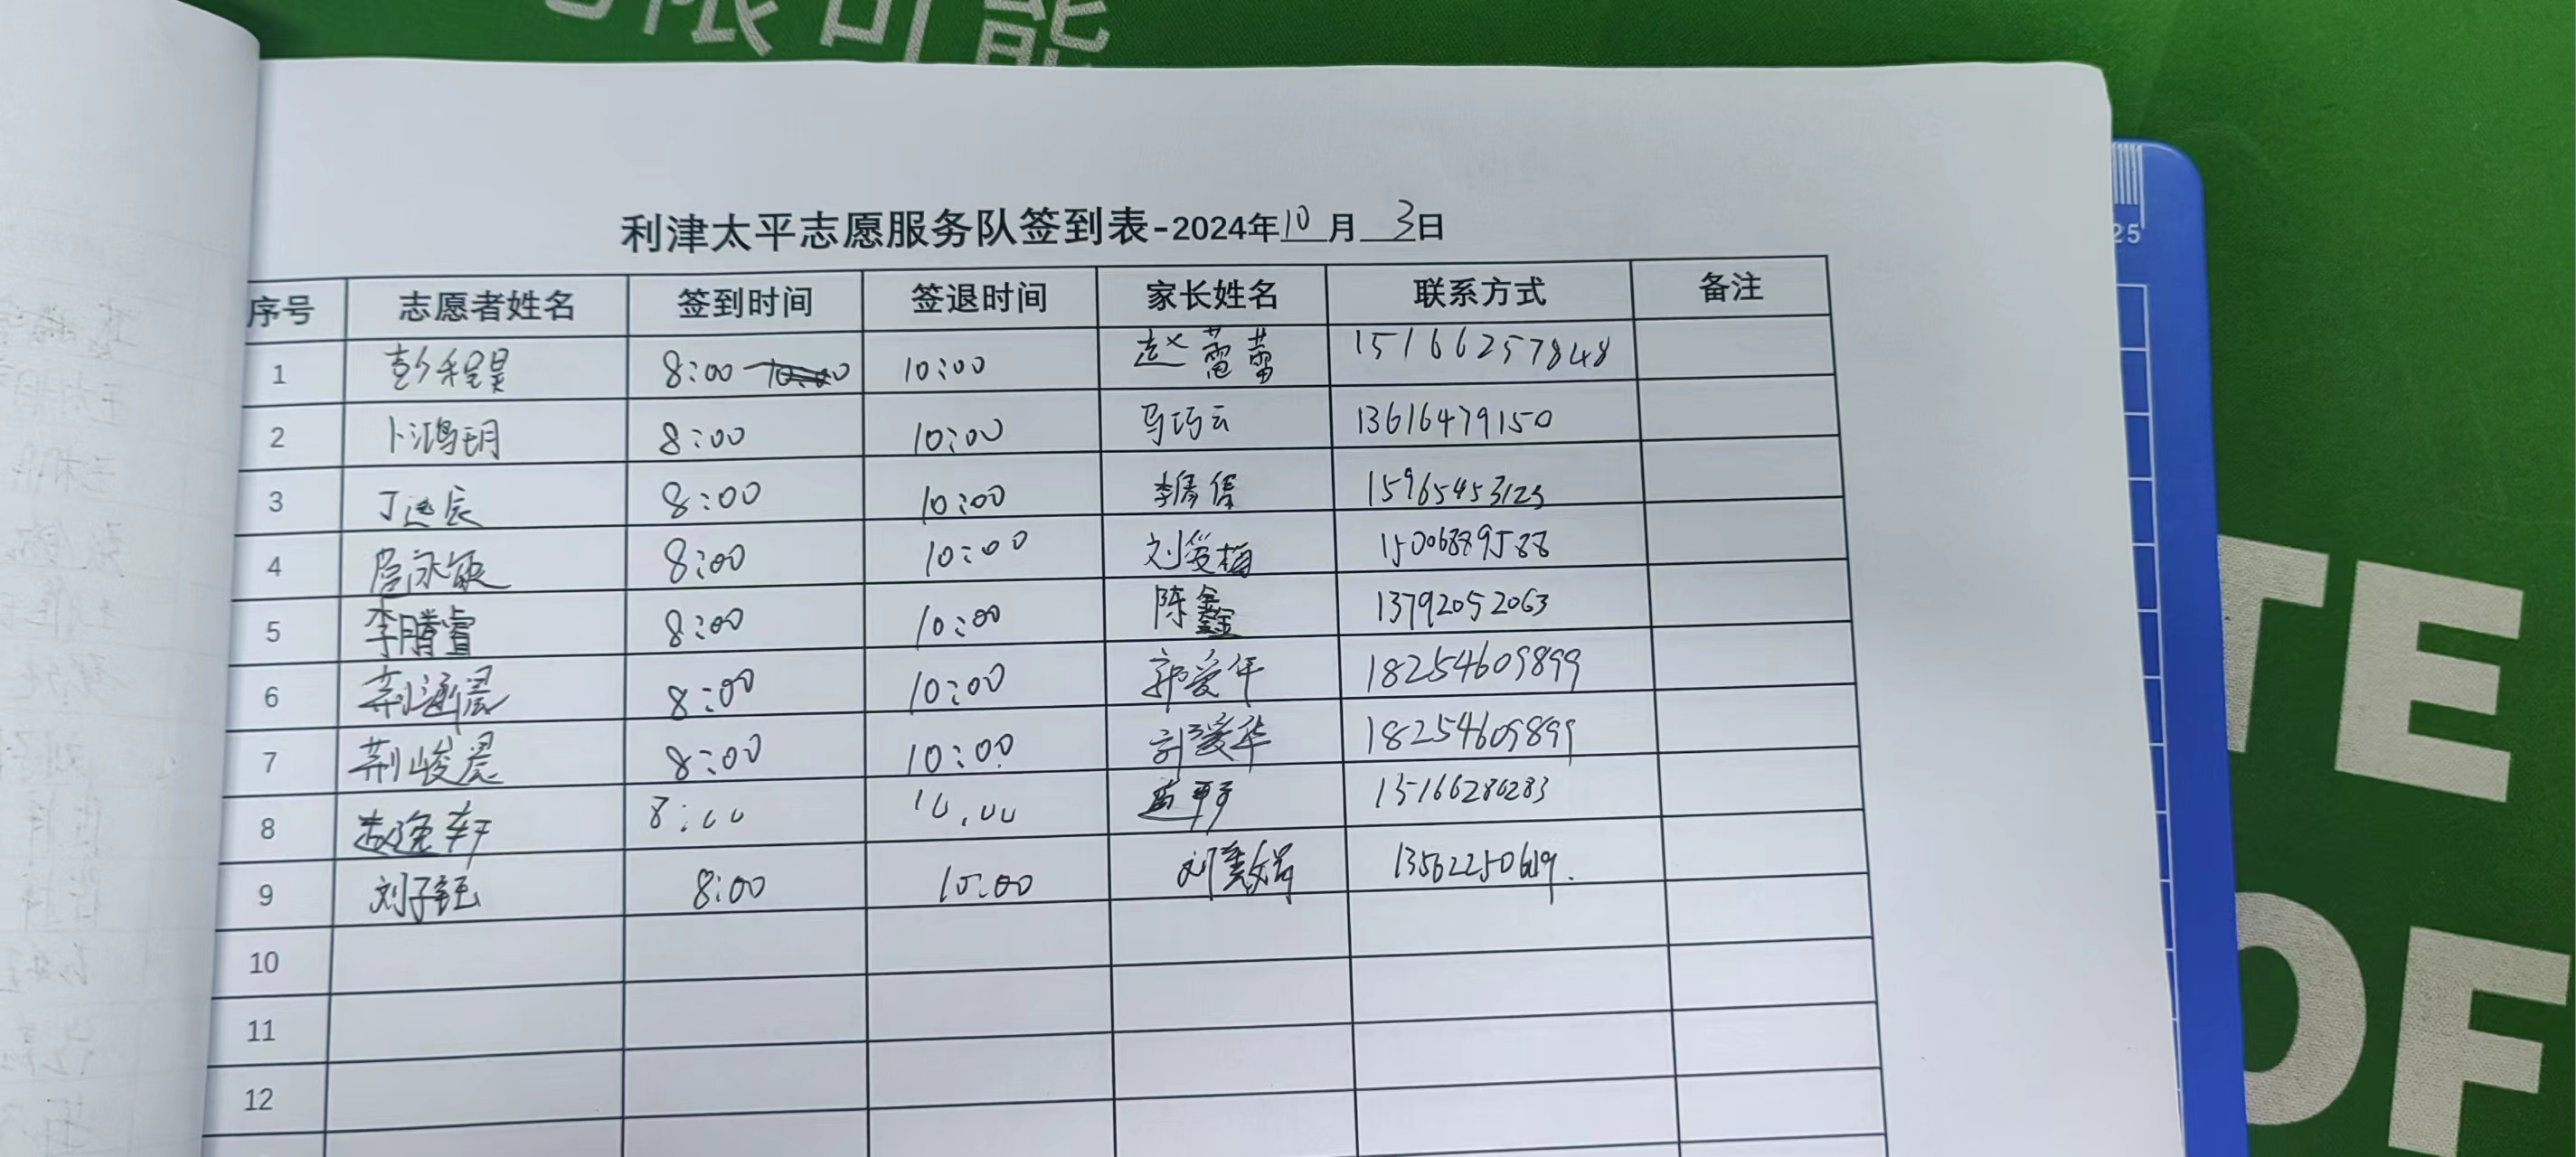 限可能
利津太平志愿服务队签到表-2024年10月3日
序号 志愿者姓名 签到时间 签退时间 家长姓名 联系方式 备注
1 彭程昊 8:00 10:00 赵蕾蕾 15166257848
2 卜鸿玥 8:00 10:00 马巧云 13616479150
3 丁辰 8:00 10:00 李倩倩 15965453123
4 扈泳敏 8:00 10:00 刘爱梅 15006889588
5 李腾睿 8:00 10:00 陈鑫 13792052063
6 荆涵晨 8:00 10:00 郭爱华 18254609899
7 荆峻晨 8:00 10:00 郭爱华 18254609899
8 赵逸轩 8:00 10:00 15166286283
9 刘子钰 8:00 10:00 刘美娟 13562250619.
10
11
12
25
TE
OF